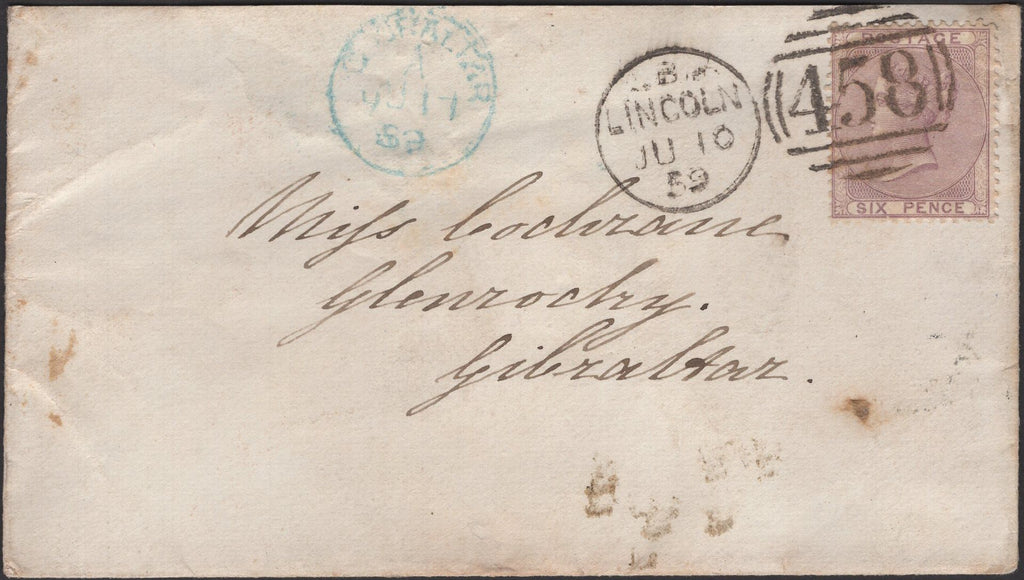 GIBRALTAR
JU 17
59
B
LINCOLN
JU 10
59
458
POSTAGE
SIX PENCE
Miss Cochrane
Glenrochy.
Gibraltar.